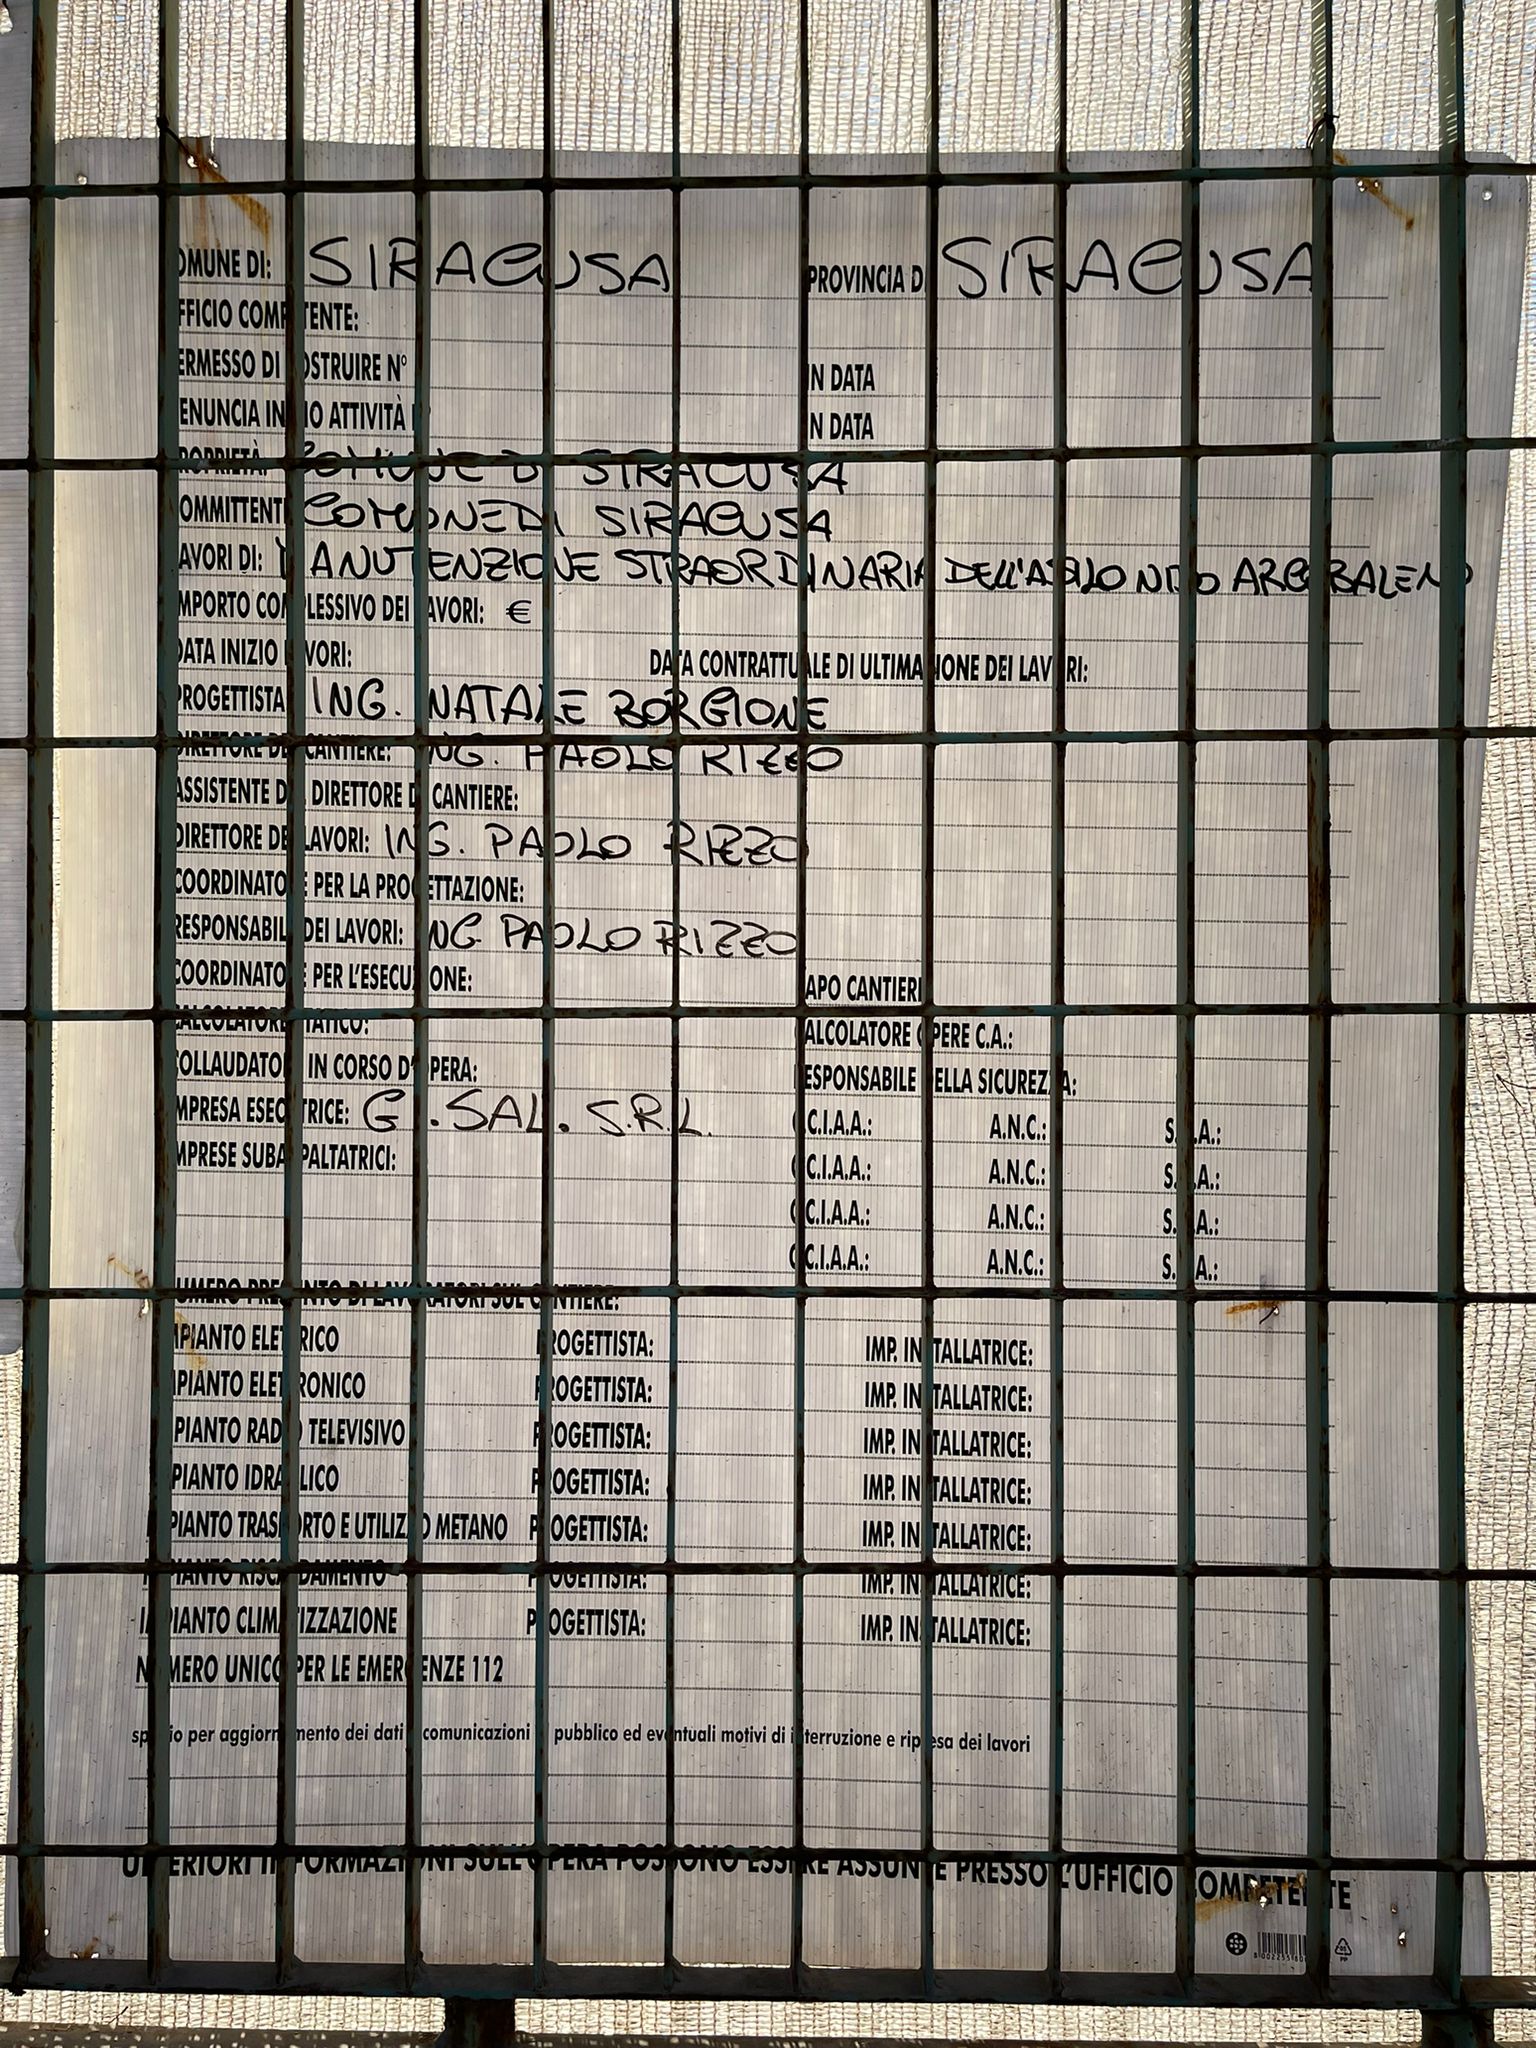 COMUNE DI: SIRACUSA PROVINCIA DI SIRACUSA
UFFICIO COMPETENTE:
PERMESSO DI COSTRUIRE N° IN DATA
DENUNCIA INIZIO ATTIVITÀ N° IN DATA
PROPRIETÀ: COMUNE DI SIRACUSA
COMMITTENTE COMUNE DI SIRACUSA
LAVORI DI: MANUTENZIONE STRAORDINARIA DELL'ASILO NIDO ARCOBALENO
IMPORTO COMPLESSIVO DEI LAVORI: €
DATA INIZIO LAVORI: DATA CONTRATTUALE DI ULTIMAZIONE DEI LAVORI:
PROGETTISTA ING. NATALE BORGIONE
DIRETTORE DEL CANTIERE: ING. PAOLO RIZZO
ASSISTENTE DEL DIRETTORE DI CANTIERE:
DIRETTORE DEI LAVORI: ING. PAOLO RIZZO
COORDINATORE PER LA PROGETTAZIONE:
RESPONSABILE DEI LAVORI: ING PAOLO RIZZO
COORDINATORE PER L'ESECUZIONE: CAPO CANTIERE
CALCOLATORE STATICO: CALCOLATORE OPERE C.A.:
COLLAUDATORE IN CORSO D'OPERA: RESPONSABILE DELLA SICUREZZA:
IMPRESA ESECUTRICE: SAL. S.R.L. C.C.I.A.A.: A.N.C.: S.O.A.:
IMPRESE SUBAPPALTATRICI: C.C.I.A.A.: A.N.C.: S.O.A.:
C.C.I.A.A.: A.N.C.: S.O.A.:
C.C.I.A.A.: A.N.C.: S.O.A.:
NUMERO PRESUNTO DI LAVORATORI SUL CANTIERE:
IMPIANTO ELETTRICO PROGETTISTA: IMP. INSTALLATRICE:
IMPIANTO ELETTRONICO PROGETTISTA: IMP. INSTALLATRICE:
IMPIANTO RADIO TELEVISIVO PROGETTISTA: IMP. INSTALLATRICE:
IMPIANTO IDRAULICO PROGETTISTA: IMP. INSTALLATRICE:
IMPIANTO TRASPORTO E UTILIZZO METANO PROGETTISTA: IMP. INSTALLATRICE:
IMPIANTO RISCALDAMENTO PROGETTISTA: IMP. INSTALLATRICE:
IMPIANTO CLIMATIZZAZIONE PROGETTISTA: IMP. INSTALLATRICE:
NUMERO UNICO PER LE EMERGENZE 112
spazio per aggiornamento dei dati e comunicazioni al pubblico ed eventuali motivi di interruzione e ripresa dei lavori
ULTERIORI INFORMAZIONI SULL'OPERA POSSONO ESSERE ASSUNTE PRESSO L'UFFICIO COMPETENTE
PP